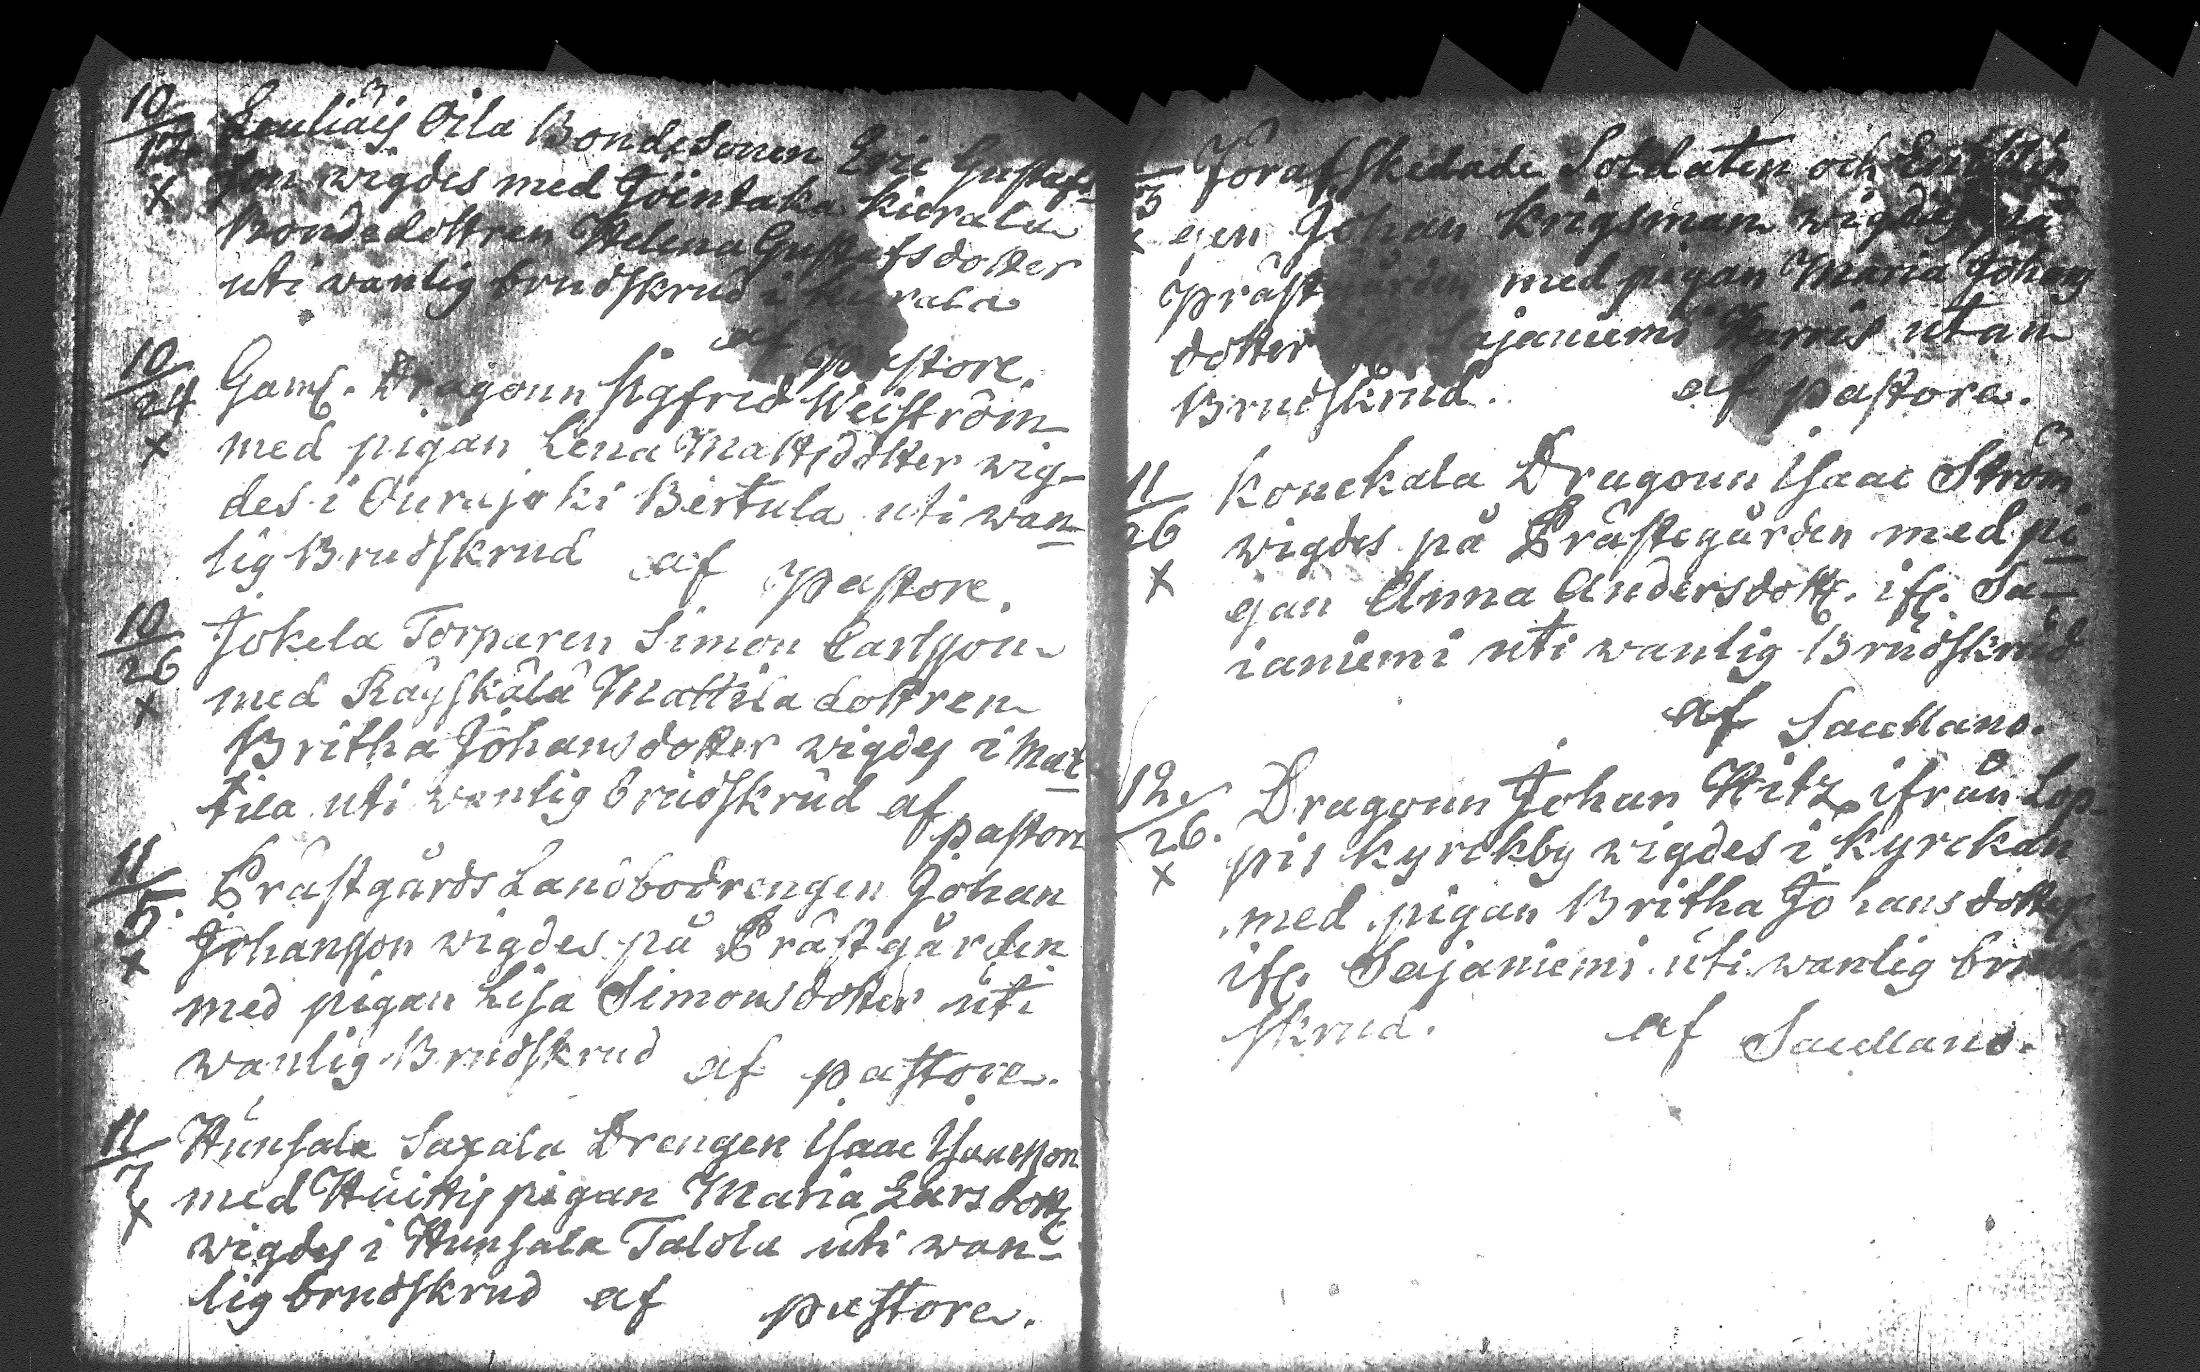 10/12 x
Leuliäis Oila Bondesonen Eric Gustafs-
son wigdes med Jöentaka Kierala
Bondedottren Helena Gustafsdotter
uti wanlig brudskrud i Kierala
af pastore.
10/24 x
Gaml. Dragoun Sigfrid Weiström
med pigan Lena Mattsdotter wig-
des i Ourajoki Bertula uti wan-
lig Brudskrud af pastore.
10/26 x
Jokela Torparen Simon Carlsson
med Räyskälä Mattila dottren
Britha Johansdotter wigdes i Mat-
tila uti wanlig brudskrud af
pastore
11/5. x
Prästgårds Landbodrengen Johan
Johansson wigdes på Prästgården
med pigan Lisa Simonsdotter uti
wanlig Brudskrud af pastore.
11/7 x
Hunsala Saxala Drengen Isaac Isacsson
med Huittis pigan Maria Larsdott.
wigdes i Hunsala Talola uti wan-
lig brudskrud af pastore.
3 x
Förafskedade Soldaten och
gen Johan Krigsman wigdes på
Prästgården med pigan Maria Johans
dotter Sajaniemi Harris utan
Brudskrud. af pastore.
11/26 x
Konckala Dragoun Isaac Ström
wigdes på Prästegården med pi-
gan Anna Andersdott. ifr. Sa-
janiemi uti wanlig Brudskrud
af Sacellano.
12/26. x
Dragoun Johan Hitz ifrån Lop-
pis Kyrckby wigdes i Kyrckan
med pigan Britha Johansdotter
ifr. Sajaniemi uti wanlig brud
skrud. af Sacellano.